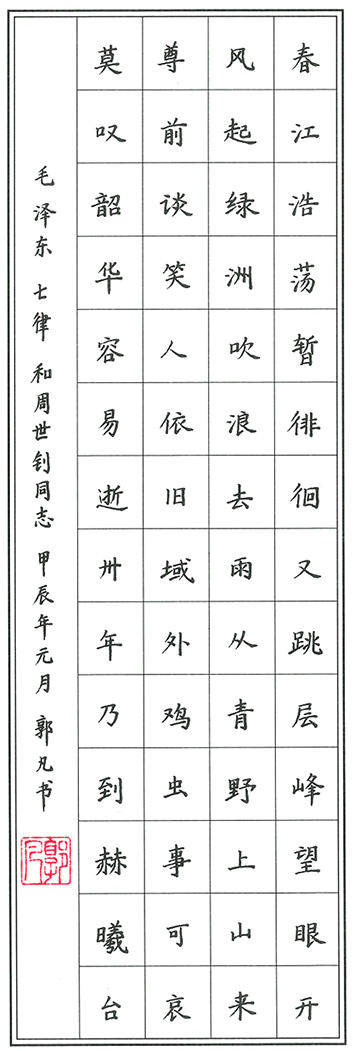 春江浩荡暂徘徊又跳层峰望眼开
风起绿洲吹浪去雨从青野上山来
尊前谈笑人依旧域外鸡虫事可哀
莫叹韶华容易逝卅年乃到赫曦台
毛泽东 七律 和周世钊同志 甲辰年元月 郭凡书
郭凡